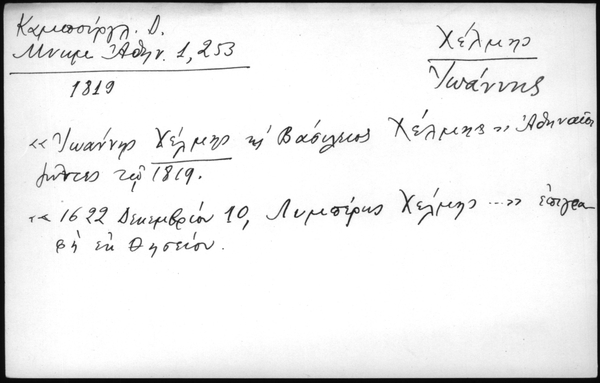 Καμπούργλ. Δ.
Μνημ Ἀθην. 1, 253
1819
Χέλμης
Ἰωάννης
«Ἰωάννης Χέλμης κὴ Βασίλειος Χέλμης» Ἀθηναῖοι
τῷ 1819.
«1622 Δεκεμβρίου 10, Λυμπέρης Χέλμης ....» ἐπιγρα-
φὴ ἐκ Θησείου.